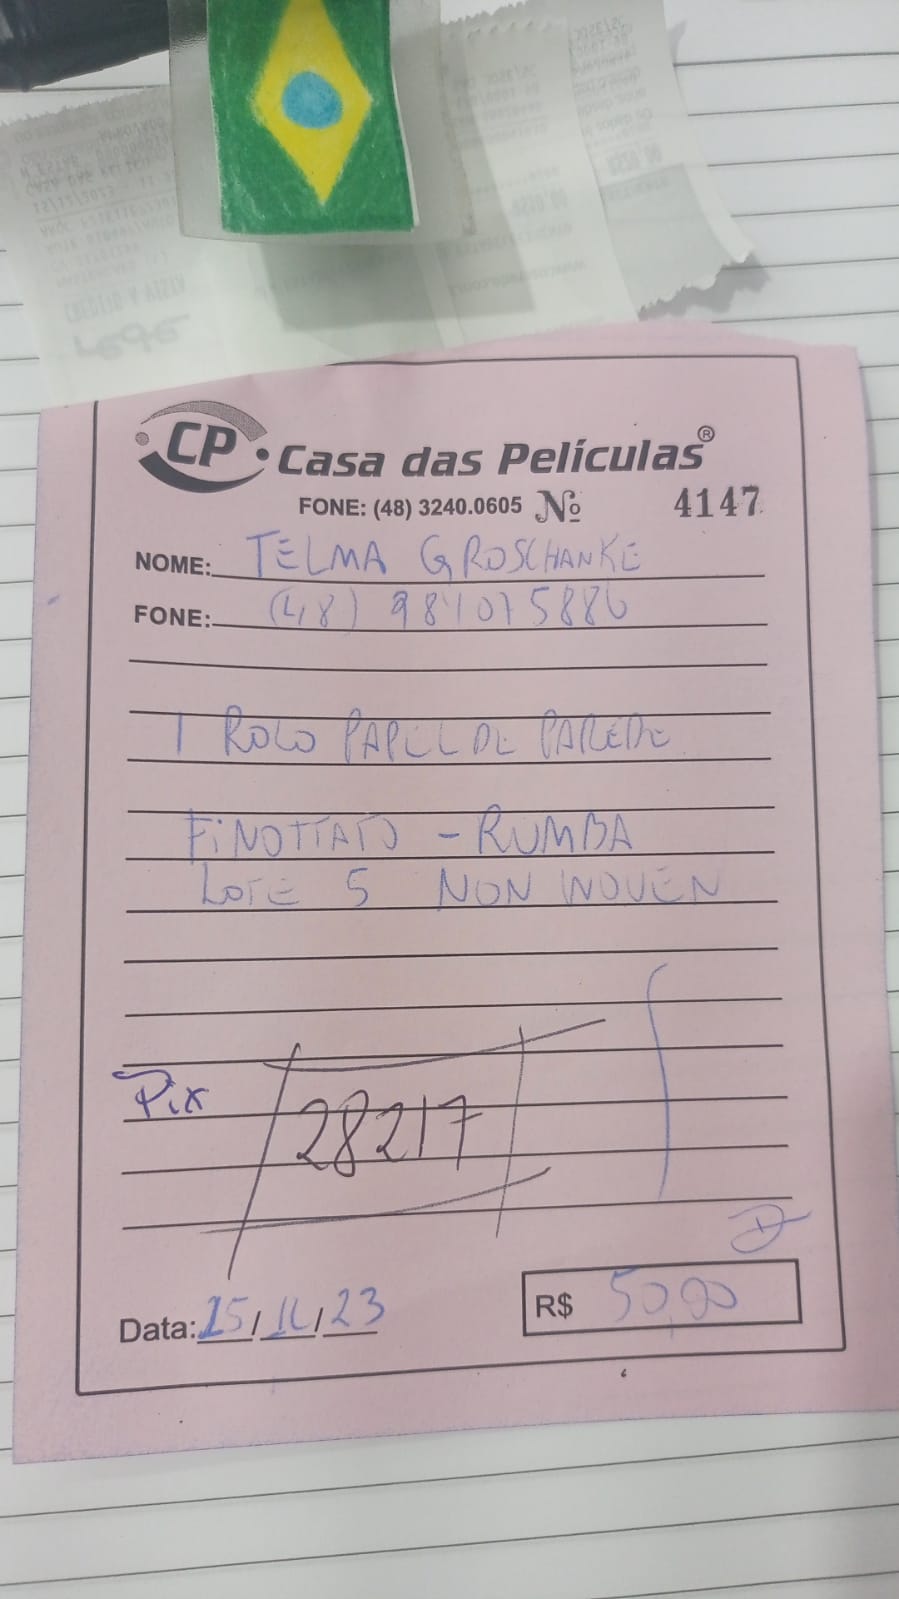 CP
Casa das Películas®
FONE: (48) 3240.0605 Nº 4147
NOME: TELMA GROSCHANKE
FONE: (48) 981075886
1 ROLO PAPEL DE PAREDE
FINOTTATO - RUMBA
LOTE 5 NON WOVEN
Pix
28217
Data: 15/11/23
R$ 50,00